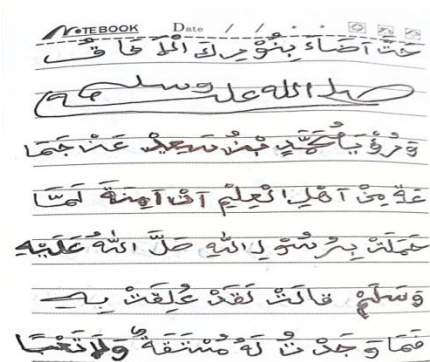 NOTEBOOK Date / /
حَتَّ أَضَاءَ بِنُوْرِكَ الْمَلَ فَاقُ
صلى الله عليه وسلم
وَرُؤْيَا مُحَمَّدِ بْنُ سَعِيْدٍ عَنْ جَمَا
عَةٍ مِنْ أَهْلِ الْعِلْمِ اَنَّ اَمِنَةَ لَمَّا
حَمَلَتْ بِرَسُوْلِ اللّٰهِ صَلَّ اللّٰهُ عَلَيْهِ
وَسَلَّمْ قَالَتْ لَقَدْ عُلِقَتْ بِهِ
فَمَا وَجَدْتُ لَهُ مُشَقَّةً وَلَا تَعْبًا